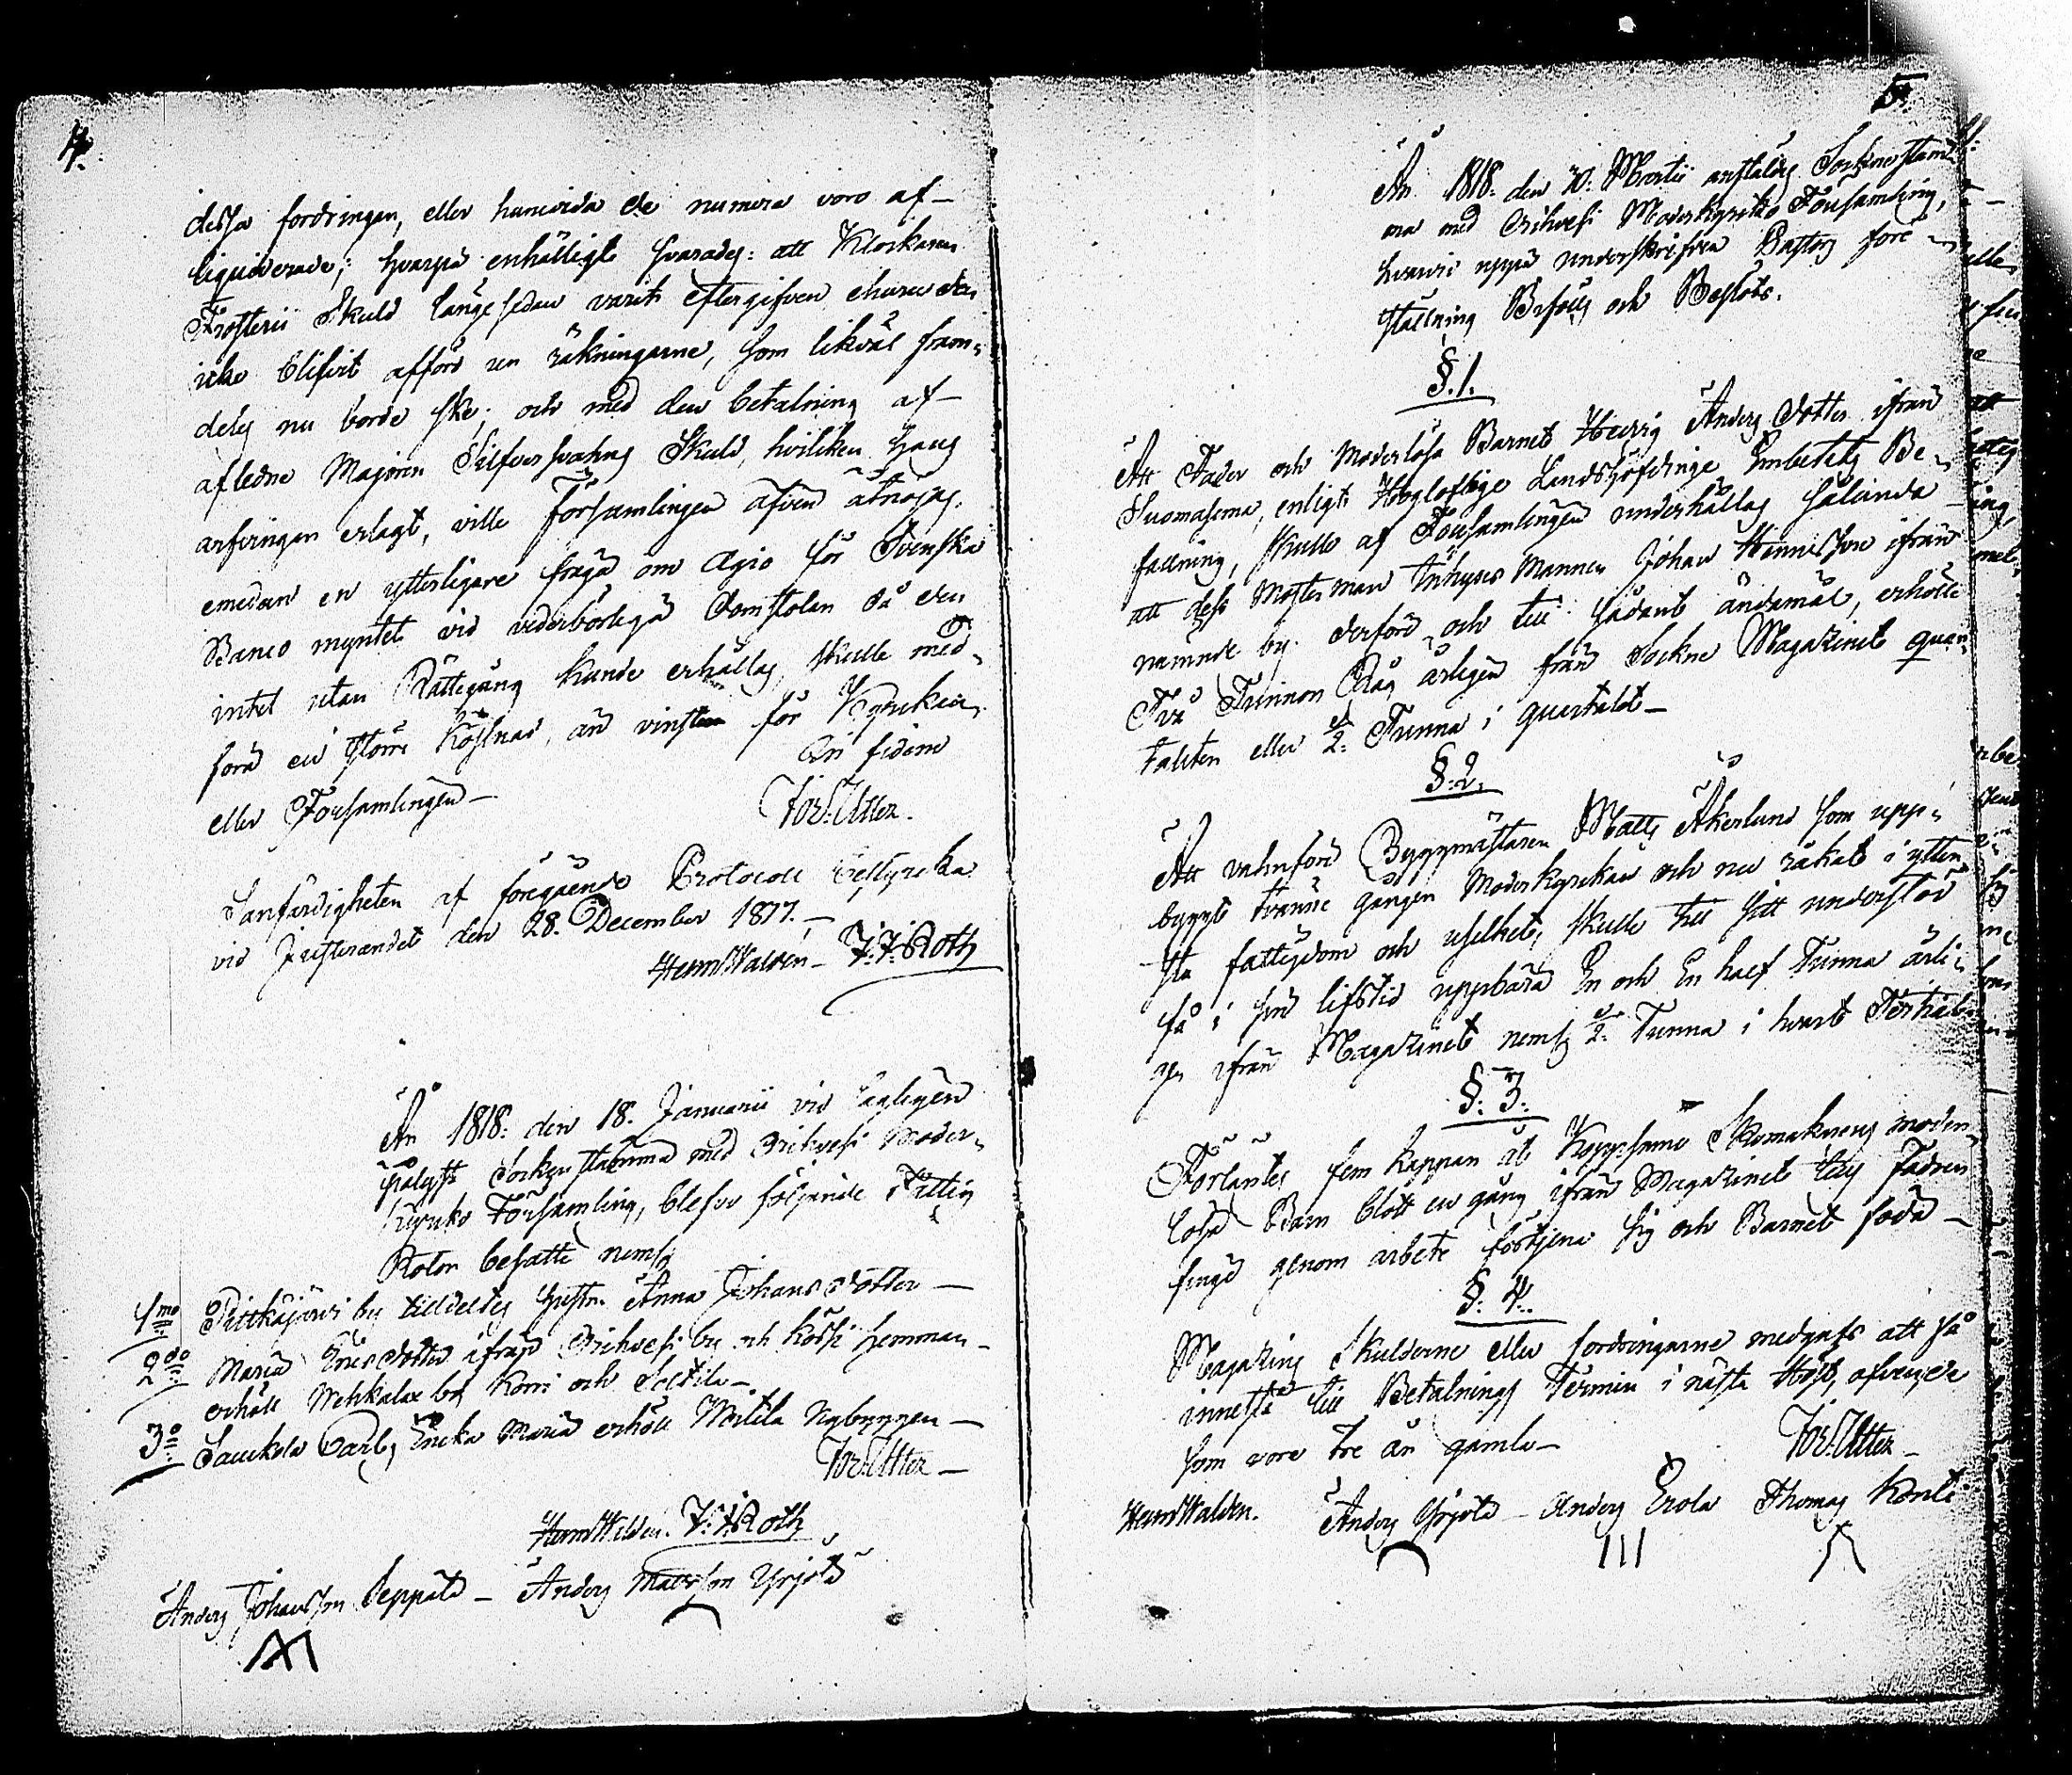 4.
dessa fordringar, eller huruvida de numera voro af-
liquiderade; hvarpå enhälligt svarades: att Klockaren
Frosterii Skuld länge sedan varit eftergifven ehuru den
icke blifvit afförd ur räkningarne, som likväl fram-
deles nu borde ske; och med den betalning af-
afledne Majoren Silfversvahns Skuld, hvilken hans
arfvingar erlagt, ville Församlingen äfven åtnöjas,
emedan en ytterligare fråga om Agio för Svenska
Banco myntet vid vederbörliga Domstolar då den
intet utan Rättegång kunde erhållas, skulle med-
föra en större kostnad, än vinsten för Kyrkan
eller Församlingen-
In fidem
Joz: Utter.
Sanfärdigheten af föregående Protocoll betyga
vid Justerandet den 28. December 1817.-
Herm Walden- J: F: Roth
År 1818: den 18. Januarii vid lagligen
pålyst Sockenstämma med Orihvesi Moder-
kyrko Församling, blefvo följande Fattig
Rotar besatte neml:
1mo Pittkäjärvi by tilldeltes Hustru Anna Johansdotter-
2do Maria Ersdotter ifrån Orihvesi by och Hemman-
erhöll Wehkalax by, Korri och
3o Carls Ericka Maria erhöll Mitila Nybyggen-
Joz: Utter-
Herm Walden. J: F: Roth
Anders Johansson Seppälä- Anders Mattsson Yrjölä
5.
År 1818: den 10: Martii anstäldes Sockenstäm-
ma med Orihvesi Moderkyrko Församling,
hvarvid uppå underskrifven Pastors före-
ställning Befans och Beslöts.
§.1.
Att Fader och Moderlösa Barnet Hedvig Anders Dotter ifrån
Suomasema, enligt Högloflige Landshöfdinge Embetets Be-
fallning, skulle af Församlingen underhållas sålunda
att dess Moster man Inhyses Mannen Johan Hinricsson ifrån
nämnde by. derföre och till sådant ändamål, erhölle
Två Tunnor Råg årligen från Sockne Magazinet quar-
taliter eller 1/2: Tunna i quartalet-
§.2.
Att vahnföre Byggmästaren Matts Åkerlund som upp-
byggt tvänne gånger Moderkyrkan och nu råkat i ytter-
sta fattigdom och uselhet, skulle till sitt understöd
få i sin lifstid uppbära En och En half Tunna årli-
gen ifrån Magazinet neml: 1/2: Tunna i hvart Tertial
§: 3:
Förlåntes fem kappar åt Skomakarens moder-
lösa Barn blott en gång ifrån Magazinet tills Fadren
finge genom arbete förtjena sig och Barnet föda-
§: 4.
Magazins Skulderne eller fordringarne medgafs att få
innestå till Betalnings Termin i nästa Höst, äfven de
som voro tre år gamla-
Joz: Utter-
Herm Walden. Anders Yrjölä- Anders Erola Thomas Kontti